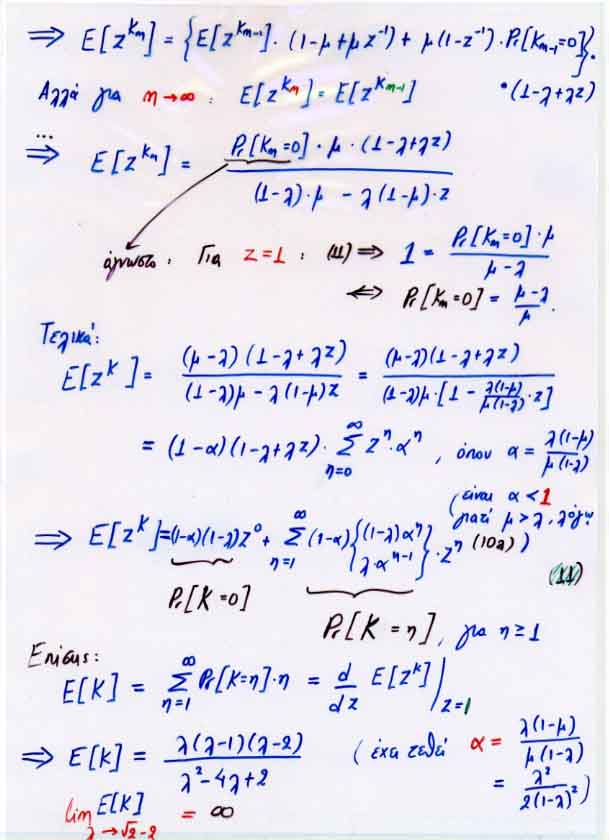 ⇒ E[z^{K_n}] = {E[z^{K_{n-1}}]·(1-μ+μz^{-1}) + μ(1-z^{-1})·Pr[K_{n-1}=0]}·
Αλλά για n→∞ : E[z^{K_n}] = E[z^{K_{n-1}}] ·(1-λ+λz)
...
⇒ E[z^{K_n}] = \frac{Pr[K_n=0]·μ·(1-λ+λz)}{(1-λ)·μ - λ(1-μ)·z}
άγνωστο : Για z=1 : (11) ⇒ 1 = \frac{Pr[K_n=0]·μ}{μ-λ}
⇔ Pr[K_n=0] = \frac{μ-λ}{μ}.
Τελικά:
E[z^K] = \frac{(μ-λ)(1-λ+λz)}{(1-λ)μ - λ(1-μ)z} = \frac{(μ-λ)(1-λ+λz)}{(1-λ)μ·[1 - \frac{λ(1-μ)}{μ(1-λ)}·z]}
= (1-α)(1-λ+λz)·\sum_{n=0}^{∞} z^n·α^n , όπου α = \frac{λ(1-μ)}{μ(1-λ)}
(είναι α<1
γιατί μ>λ, λόγω
(10λ))
⇒ E[z^K] = (1-α)(1-λ)z^0 + \sum_{n=1}^{∞} (1-α){(1-λ)α^n + λ·α^{n-1}}·z^n
(11)
Pr[K=0]
Pr[K=n], για n≥1
Επίσης:
E[K] = \sum_{n=1}^{∞} Pr[K=n]·n = \frac{d}{dz} E[z^K] |_{z=1}
⇒ E[K] = \frac{λ(λ-1)(λ-2)}{λ²-4λ+2} (έχει τεθεί α = \frac{λ(1-μ)}{μ(1-λ)}
= \frac{λ²}{2(1-λ)²})
lim_{λ→√2-2} E[K] = ∞